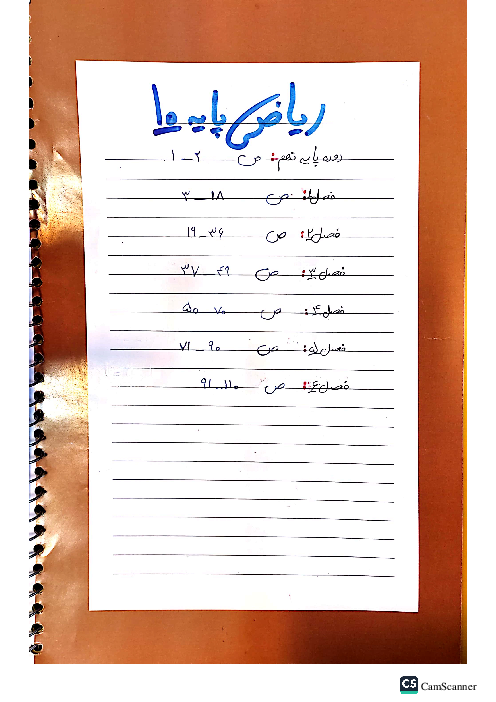 ریاضی پایه 10
دوره پایه نهم: ص ۲ _ ۱
فصل۱: ص ۱۸ _ ۳
فصل۲: ص ۳۶ _ ۱۹
فصل۳: ص ۴۹ _ ۳۷
فصل۴: ص ۷۰ _ ۵۰
فصل۵: ص ۹۰ _ ۷۱
فصل۶: ص ۱۱۰ _ ۹۱
CS CamScanner